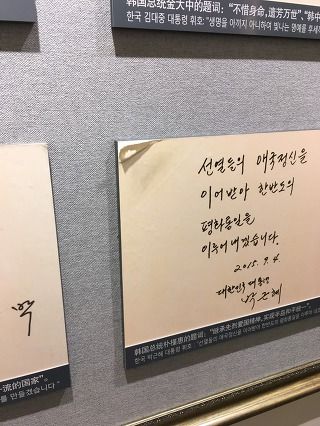 韩国总统金大中的题词：“不惜身命，遗芳万世”、“韩中
한국 김대중 대통령 휘호: "생명을 아끼지 아니하여 빛나는 명예를 후세
선열들의 애국정신을
이어받아 한반도의
평화통일을
이루어 내겠습니다.
2015. 9. 4.
대한민국 대통령
박근혜
韩国总统朴槿惠的题词：“继承先烈爱国精神，实现半岛和平统一”。
한국 박근혜 대통령 휘호 : "선열들의 애국정신을 이어받아 한반도의 평화통일을 이루어
一流的国家”。
를 만들겠습니다"